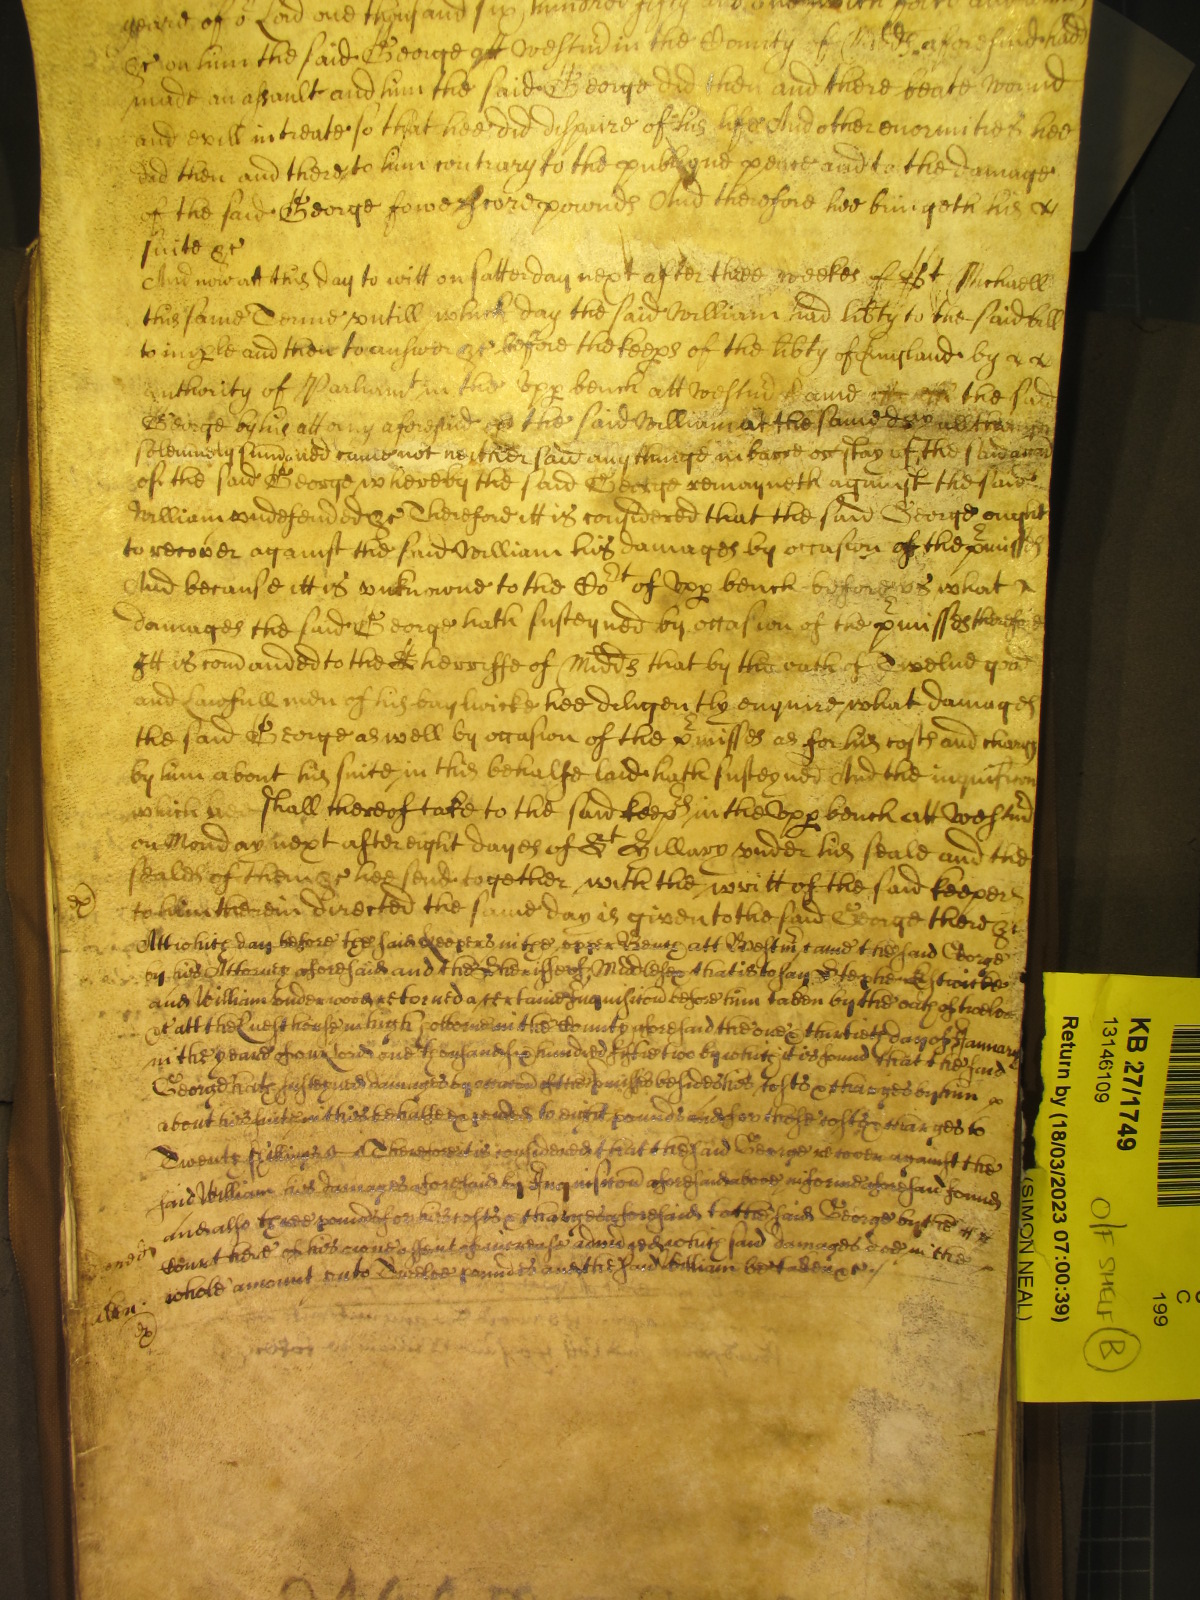 yeare of or Lord one thousand six hundred fifty and one with force and armes
&c on him the said George att Westmr in the County of Midds aforesaid hadd
made an assault and him the said George did then and there beate wound
and evill intreate so that hee did dispaire of his life And other enormities hee
did then and there to him contrary to the publique peace and to the damage
of the said George fowerscore pounds And therefore hee bringeth his
suite &c
And now att this day to witt on satterday next after three weekes of St Michaell
this same Terme untill which day the said William had libty to the said bill
to imple and then to answer &c before the keeps of the libty of England by
authority of Parliamt in the Upp bench att Westmr Came the said
George by his attorny aforesaid the said William at the same day allthough
solemnely summoned came not neither said any thinge in barre or stay of the said accon
of the said George whereby the said George remayneth against the said
William undefended &c Therefore itt is considered that the said George ought
to recover against the said William his damages by occasion of the pmisses
And because itt is unknowne to the Cort of Upp bench before us what
damages the said George hath susteyned by occasion of the pmisses therefore
Itt is comanded to the Sherriffe of Midds that by the oath of Twelve good
and lawfull men of his baylwicke hee diligently enquire what damages
the said George as well by occasion of the pmisses as for his costs and charges
by him about his suite in this behalfe laid hath susteyned And the inquisicon
which he shall thereof take to the said keeps in the Upp bench att Westmr
on Monday next after eight dayes of St Hillary under his seale and the
seales of them &c hee send together with the writt of the said keepers
to him therein directed the same day is given to the said George there &c
Att which day before the said keepers in the upper Bench att Westmr came the said George
by his Attorney aforesaid and the Sherriffe of Middlesex that is to say Stephen Estwicke
and William Underwood retorned a certaine Inquisicon before him taken by the oath of twelve
&c att the Quest house in high Holborne in the County aforesaid the one & thirtieth day of January
in the yeare of our Lord one thousand six hundred fiftie two by which it is found that the said
George hath susteyned damages by occasion of the pmisses besides his costs & charges by him
about his suite in this behalfe expended to eight pounds and for those costs & charges to
Twenty shillings Therefore it is considered that the said George recover against the
said William his damages aforesaid by Inquisicon aforesaid above in forme aforesaid found
and also three pounds for his costs & charges aforesaid to the said George by the
Court here of his owne assent of increase adiudged which said damages doe in the
whole amount unto Twelve pounds and the said William be taken &c
KB 27/1749
13146109
Return by (18/03/2023 07:00:39)
(SIMON NEAL)
C
199
O/F SHELF
B